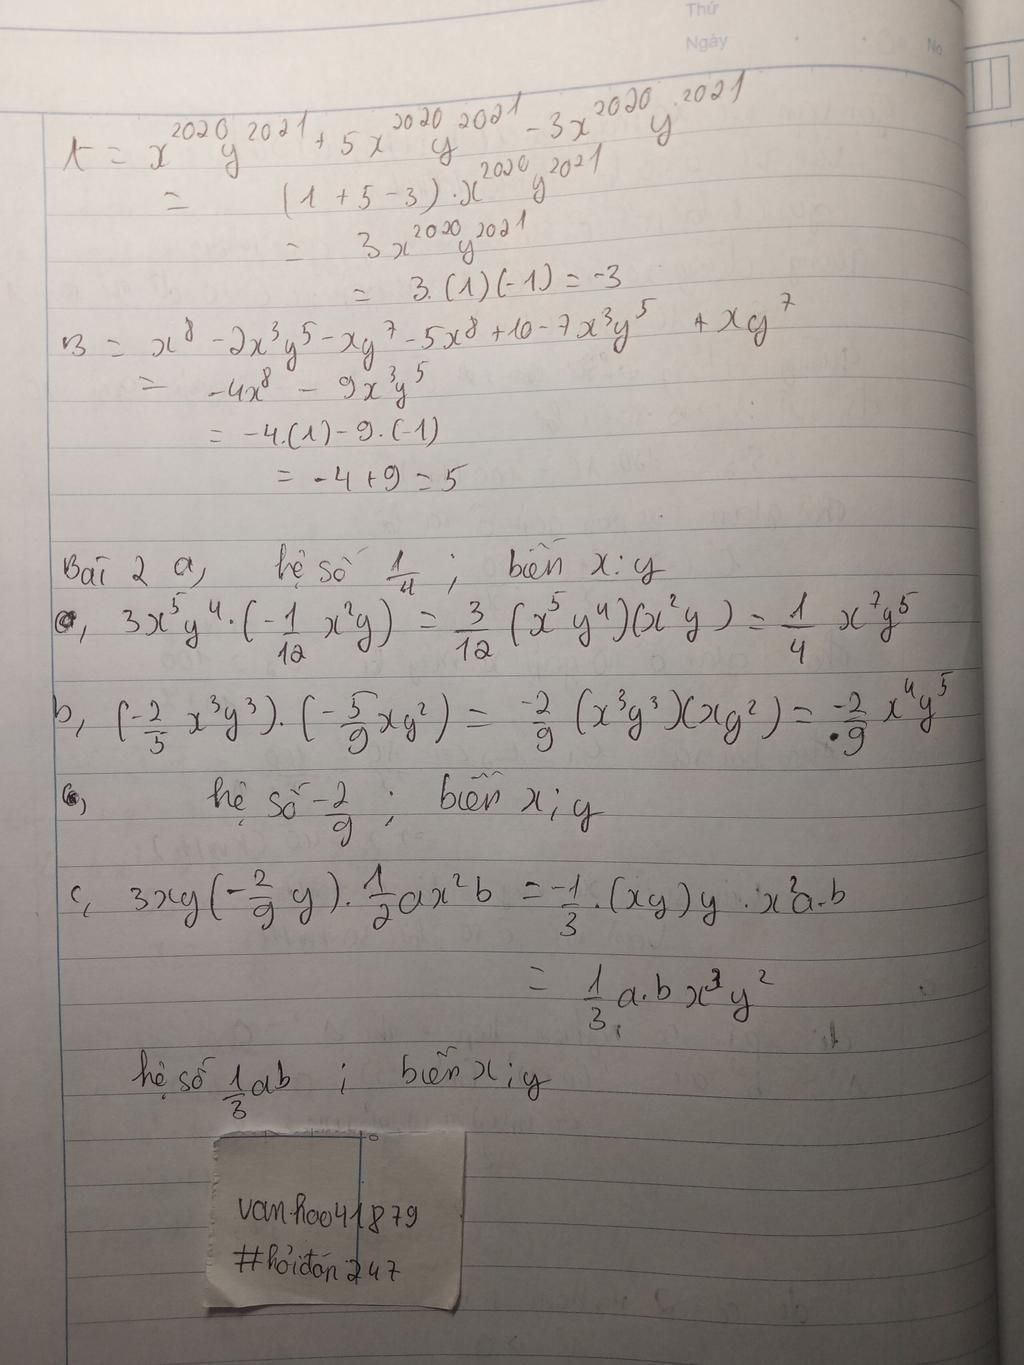 Thứ
Ngày
No.
A = x^2020 y^2021 + 5x^2020 y^2021 - 3x^2020 y^2021
= (1 + 5 - 3) . x^2020 y^2021
= 3x^2020 y^2021
= 3.(1)(-1) = -3
B = x^8 - 2x^3y^5 - xy^7 - 5x^8 + 10 - 7x^3y^5 + xy^7
= -4x^8 - 9x^3y^5
= -4.(1) - 9.(-1)
= -4 + 9 = 5
Bài 2 a, hệ số 1/4 ; biến x:y
a, 3x^5y^4 . (-1/12 x^2y) = 3/12 (x^5y^4)(x^2y) = 1/4 x^7y^5
b, (-2/5 x^3y^3) . (-5/9 xy^2) = -2/9 (x^3y^3)(xy^2) = -2/9 x^4y^5
hệ số -2/9 ; biến x;y
c, 3xy(-2/9 y) . 1/2 ax^2b = -1/3 . (xy)y . x^2a.b
= 1/3 a.b x^3y^2
hệ số 1/3 ab ; biến x;y
vanhao41879
#hỏiđán247